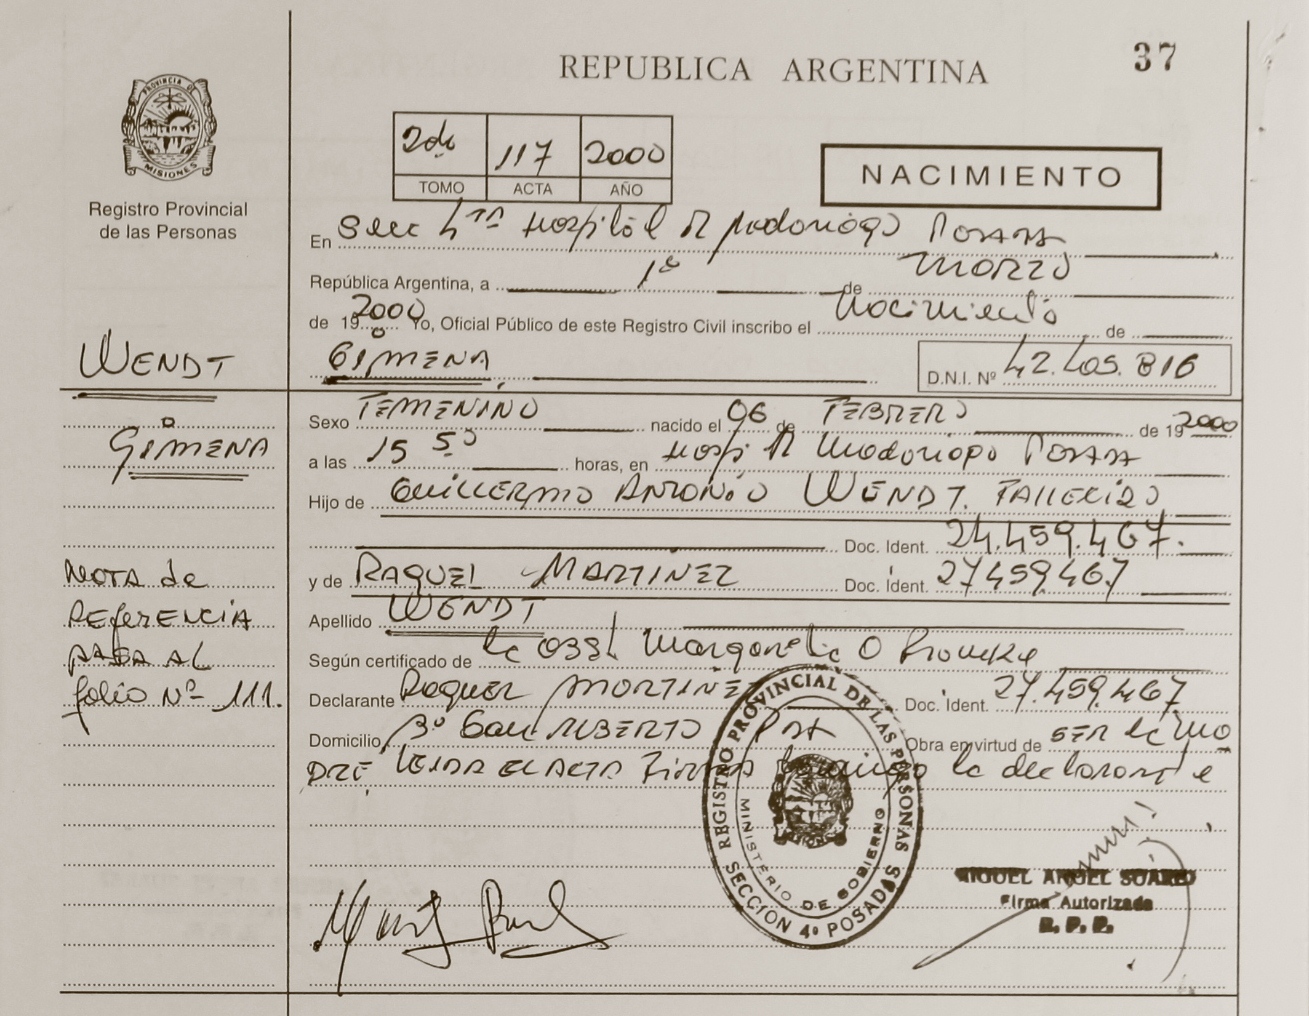 37
REPUBLICA ARGENTINA
PROVINCIA DE
MISIONES
Registro Provincial
de las Personas
2do 117 2000
TOMO ACTA AÑO
NACIMIENTO
En Secc 4ta Hospital R Madariaga Posadas
República Argentina, a 1º de Marzo
de 19 2000 Yo, Oficial Público de este Registro Civil inscribo el Nacimiento de
WENDT GIMENA D.N.I. Nº 42.405.816
GIMENA
Sexo FEMENINO nacido el 06 de FEBRERO de 19 2000
a las 15 50 horas, en Hosp R Madariaga Posadas
Hijo de GUILLERMO ANTONIO WENDT. FALLECIDO
Doc. Ident. 24.459.467.
y de RAQUEL MARTINEZ Doc. Ident. 27459467
Apellido WENDT
Según certificado de la Obst Margarita O
Declarante Raquel MARTINEZ Doc. Ident. 27.459.467
Domicilio Bº San ALBERTO Obra en virtud de SER la MA
DRE LEIDA EL ACTA FIRMA la declarante
NOTA de
REFERENCIA
PASA AL
folio Nº 111.
REGISTRO PROVINCIAL DE LAS PERSONAS
MINISTERIO DE GOBIERNO
MISIONES
SECCION 4º POSADAS
MIGUEL ANGEL SUAREZ
Firma Autorizada
R. P. P.